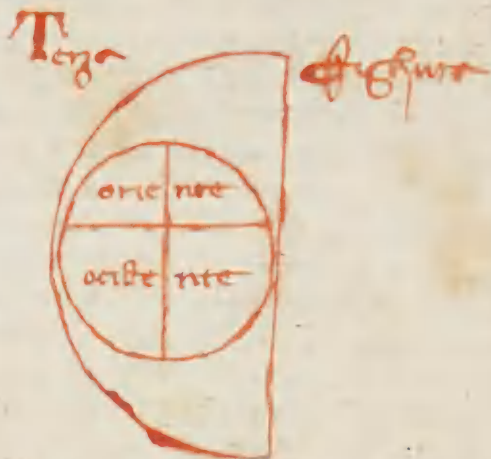 Terza fighura
orie nte
ocide nte